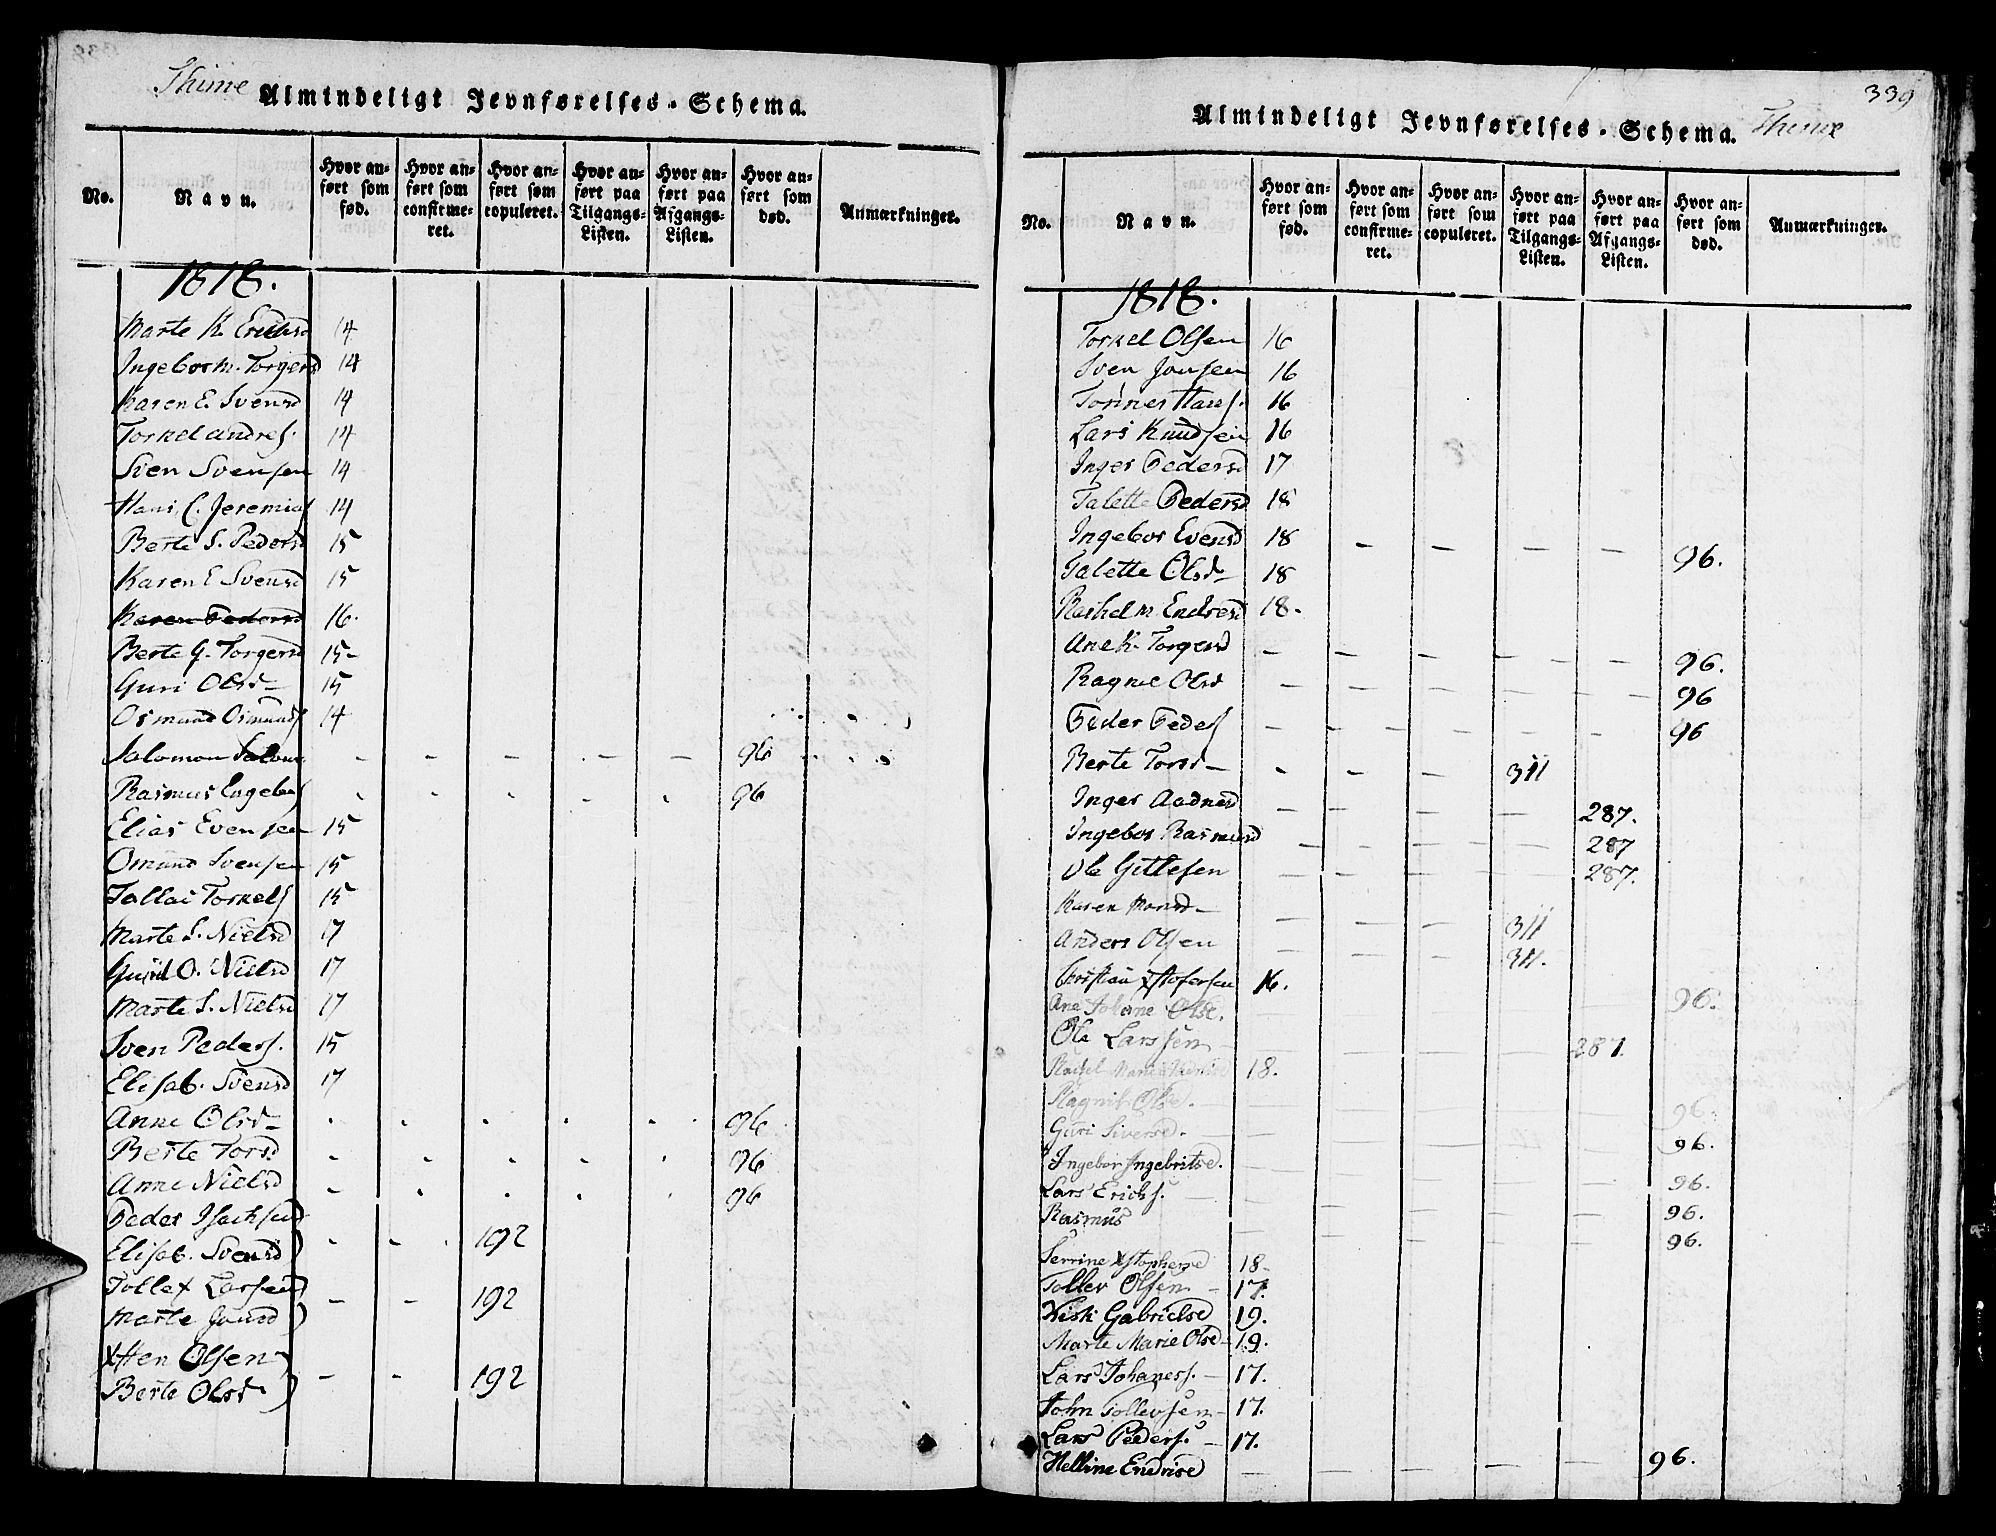 Thime
Almindeligt Jevnførelses-Schema.
No.
Navn.
Hvor anført som fød.
Hvor anført som confirmeret.
Hvor anført som copuleret.
Hvor anført paa Tilgangs-Listen.
Hvor anført paa Afgangs-Listen.
Hvor anført som død.
Anmærkninger.
1818.
Marte K. 14
Ingebor M. Torgersd 14
Karen E. Svensd 14
Torkel Andres. 14
Sven Svensen 14
Hans C. Jeremias 14
Berte S. Pedersd 15
Karen E Svensd 15
Karen Pedersd 16.
Berte G. Torgersd 15-
Guri Olsd- 15
Osmund Osmunds 14
Salomon - - - - - 96
Rasmus Engebr 96
Elias Evensen 15
Omund Svensen 15
Tallac Torkels 15
Marte S. Nielsd 17
O. Nielsd 17
Marte S. Nielsd 17
Sven Peders. 15
Elisab. Svensd 17
Anne Olsd- 96
Berte Torsd 96
Anne Nielsd 96
Peder Isachsen
Elisab. Svensd) 192
Tollef Larsen)
Marte Jonsd) 192
Olsen)
Berte Olsd) 192
339
Almindeligt Jevnførelses-Schema. Thime
No.
Navn.
Hvor anført som fød.
Hvor anført som confirmeret.
Hvor anført som copuleret.
Hvor anført paa Tilgangs-Listen.
Hvor anført paa Afgangs-Listen.
Hvor anført som død.
Anmærkninger.
1818.
Torkel Olsen 16
Sven Jonsen 16
Tønnes Hans. 16
Lars Knudsen 16
Inger Pedersd 17
Talette Pedersd 18
Ingebor Evensd 18 - - - - 96.
Talette Olsd- 18
Rachel M Endresd 18-
Ane K. Torgersd - - - - - 96.
Ragnil Olsd - - - - - 96
Peder Peders - - - - - 96
Berte Torsd- - - - 311
Inger Aadnesd - - - - 287.
Ingebor Rasmusd - - - - 287
Ole Gittlesen - - - - 287.
Karen Monsd- - - - 311
Anders Olsen - - - 311.
Christian Xstofersen 16.
Ane Johane Olsd. - - - - - 96.
Ole Larssen - - - - - 287.
Rachel Maria 18.
Ragnil Olsd. - - - - - 96.
Guri Siversd. - - - - - 96.
Ingebor Ingebritsd. - - - - - 96.
Lars Erichs. - - - - - 96.
Rasmus - - - - - 96.
Serrine Xstophersd 18-
Tollev Olsen - 17.
Gabrielsd 19.
Marte Marie Olsd- 19.
Lars Johanes. - 17.
John Tollevsen - 17.
Lars Peders. - 17.
Helline Endrisd - - - - - 96.